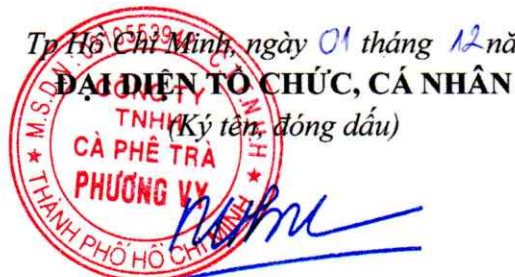 Tp Hồ Chí Minh, ngày 01 tháng 12 nă
ĐẠI DIỆN TỔ CHỨC, CÁ NHÂN
(Ký tên, đóng dấu)
CÔNG TY
TNHH
CÀ PHÊ TRÀ
PHƯƠNG VY
THÀNH PHỐ HỒ CHÍ MINH